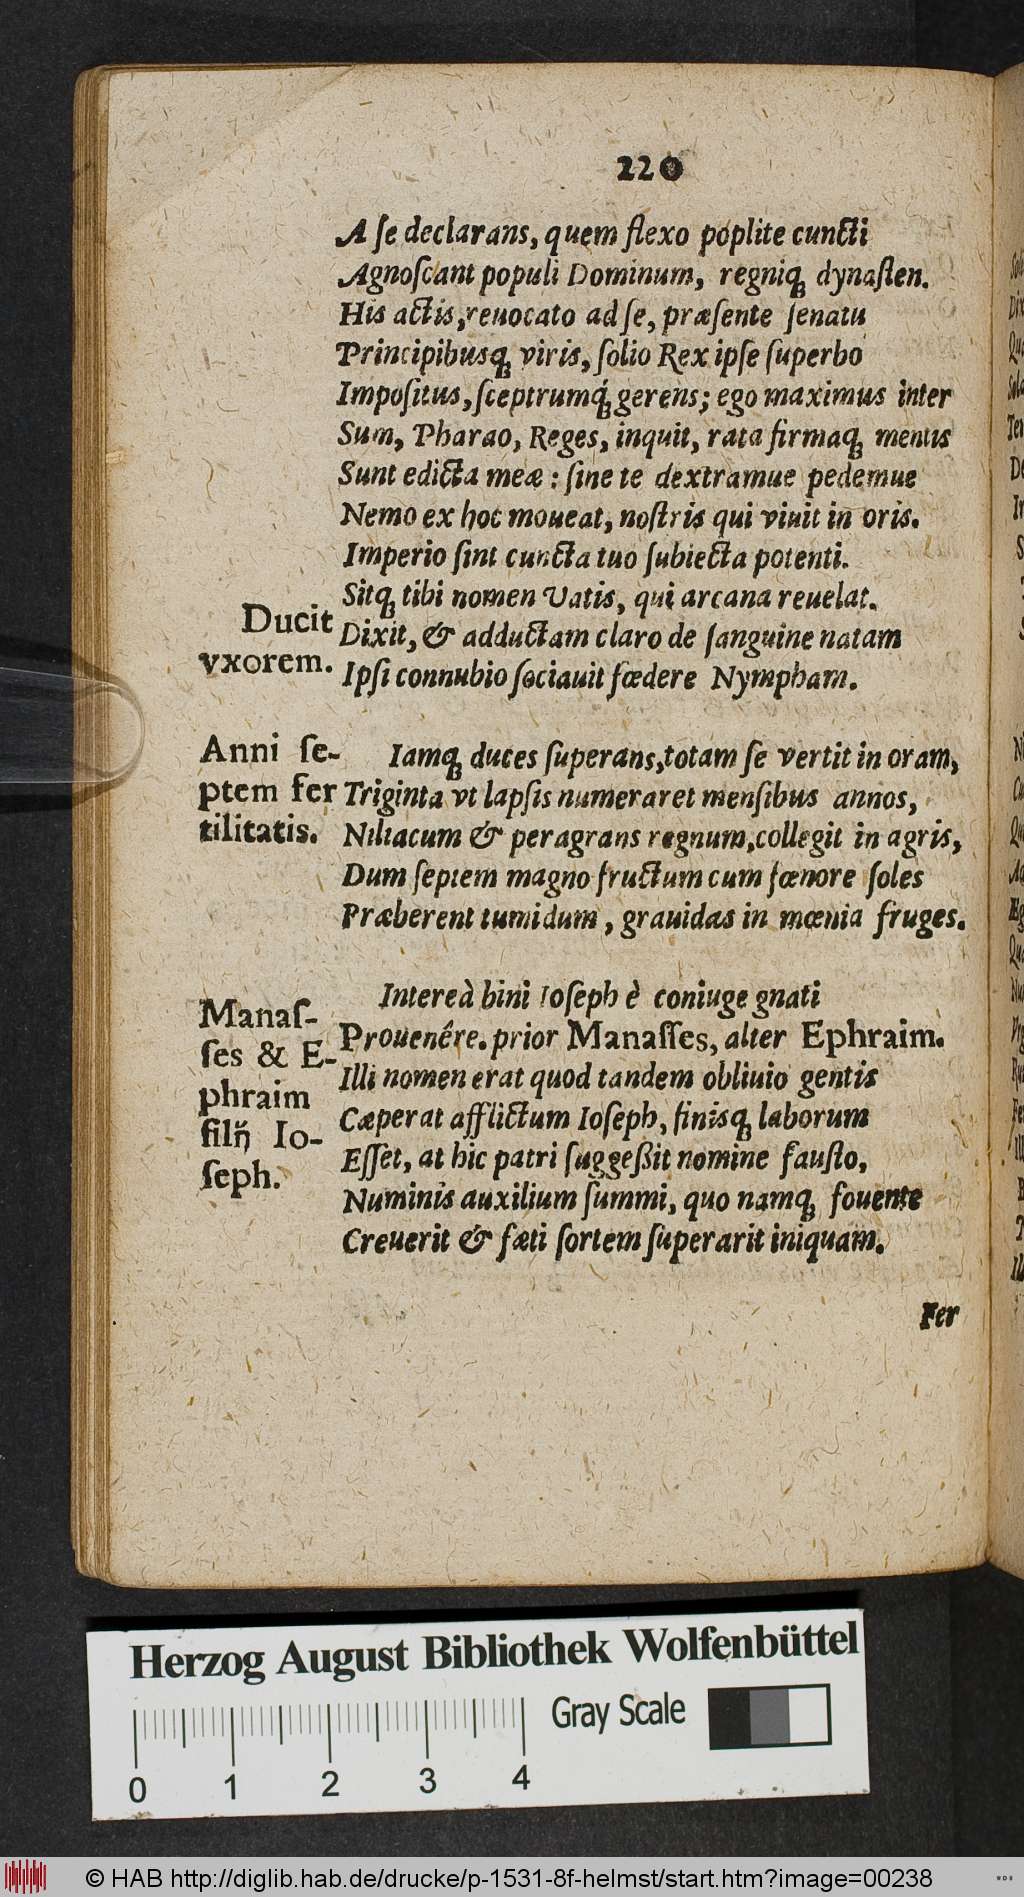 220
A ſe declarans, quem flexo poplite cuncti
Agnoſcant populi Dominum, regniq́; dynaſten.
His actis, reuocato ad ſe, præſente ſenatu
Principibusq́; viris, ſolio Rex ipſe ſuperbo
Impoſitus, ſceptrumq́; gerens; ego maximus inter
Sum, Pharao, Reges, inquit, rata firmaq́; mentis
Sunt edicta meæ : ſine te dextramue pedemue
Nemo ex hoc moueat, noſtris qui viuit in oris.
Imperio ſint cuncta tuo ſubiecta potenti.
Sitq́; tibi nomen Vatis, qui arcana reuelat.
Ducit
vxorem.
Dixit, & adductam claro de ſanguine natam
Ipſi connubio ſociauit fœdere Nympham.
Anni ſe-
ptem fer
tilitatis.
Iamq́; duces ſuperans, totam ſe vertit in oram,
Triginta vt lapſis numeraret menſibus annos,
Niliacum & peragrans regnum, collegit in agris,
Dum ſeptem magno fructum cum fœnore ſoles
Præberent tumidum, grauidas in mœnia fruges.
Manaſ-
ſes & E-
phraim
filij Io-
ſeph.
Intereà bini Ioſeph è coniuge gnati
Prouenêre. prior Manaſſes, alter Ephraim.
Illi nomen erat quod tandem obliuio gentis
Cæperat afflictum Ioſeph, finisq́; laborum
Eſſet, at hic patri ſuggeßit nomine fauſto,
Numinis auxilium ſummi, quo namq́; fouente
Creuerit & fæti ſortem ſuperarit iniquam.
Fer
Herzog August Bibliothek Wolfenbüttel
Gray Scale
0 1 2 3 4
© HAB http://diglib.hab.de/drucke/p-1531-8f-helmst/start.htm?image=00238